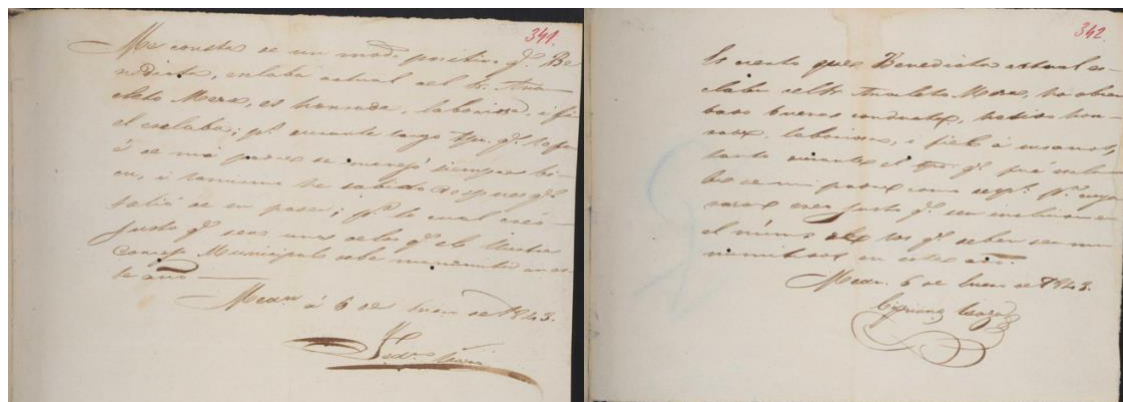 341.
Me consta de un modo positivo q.e Be
nedicta, esclaba actual del Sr. Ana
cleto Mera, es honrada, laboriosa, i fi
el esclaba; p.s durante largo tpo. q.e lo fue
de mi padre se manejó siempre bi
en, i tambien he sabido despues q.e
salió de su poder; p.r lo cual creo
justo q.e sea una de los q.e el
Municipal debe manumitir en es
te año
á 6 de de 1843.
342.
Es cierto que Benedicta actual es
claba del Sr. Anacleto Mera, ha obser
bado buena conducta, ha sido hon
rada, laboriosa, i fiel á sus amos,
tanto durante el tpo. q.e fué escla
ba de mi padre como p.r cuya
creo justo q.e sea incluida en
el número de los q.e deben ser ma
numitidos en este año.
6 de de 1843.
Cipriano